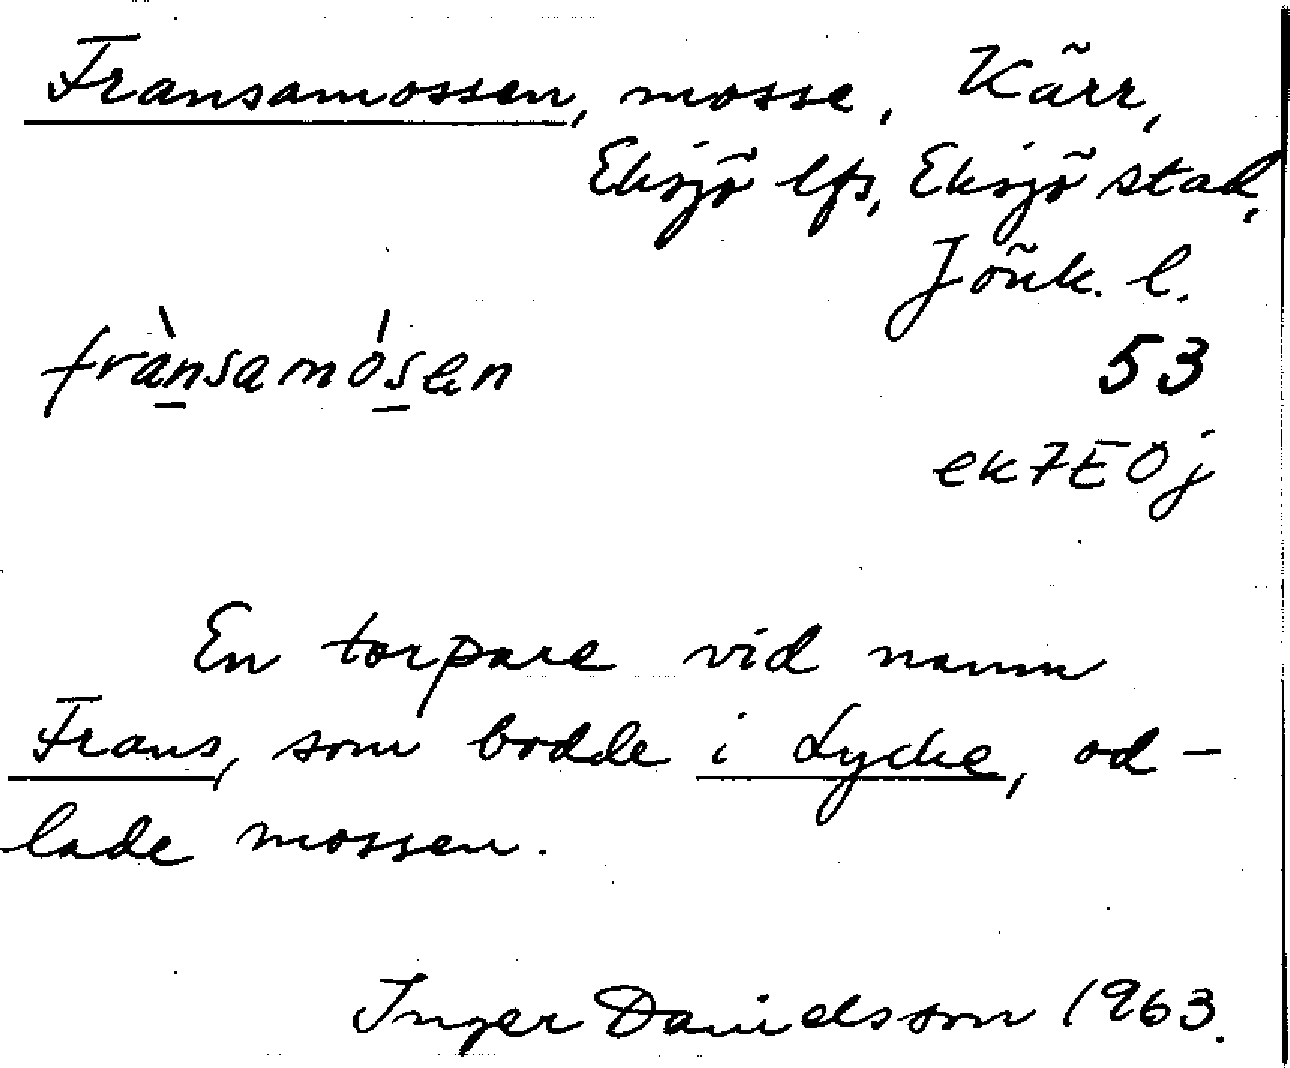 Fransamossen, mosse, Kärr,
Eksjö lfs, Eksjö stad,
Jönk. l.
frànsamósen
53
ek7E0j
En torpare vid namn
Frans, som bodde i Lycke, od-
lade mossen.
Inger Danielsson 1963.